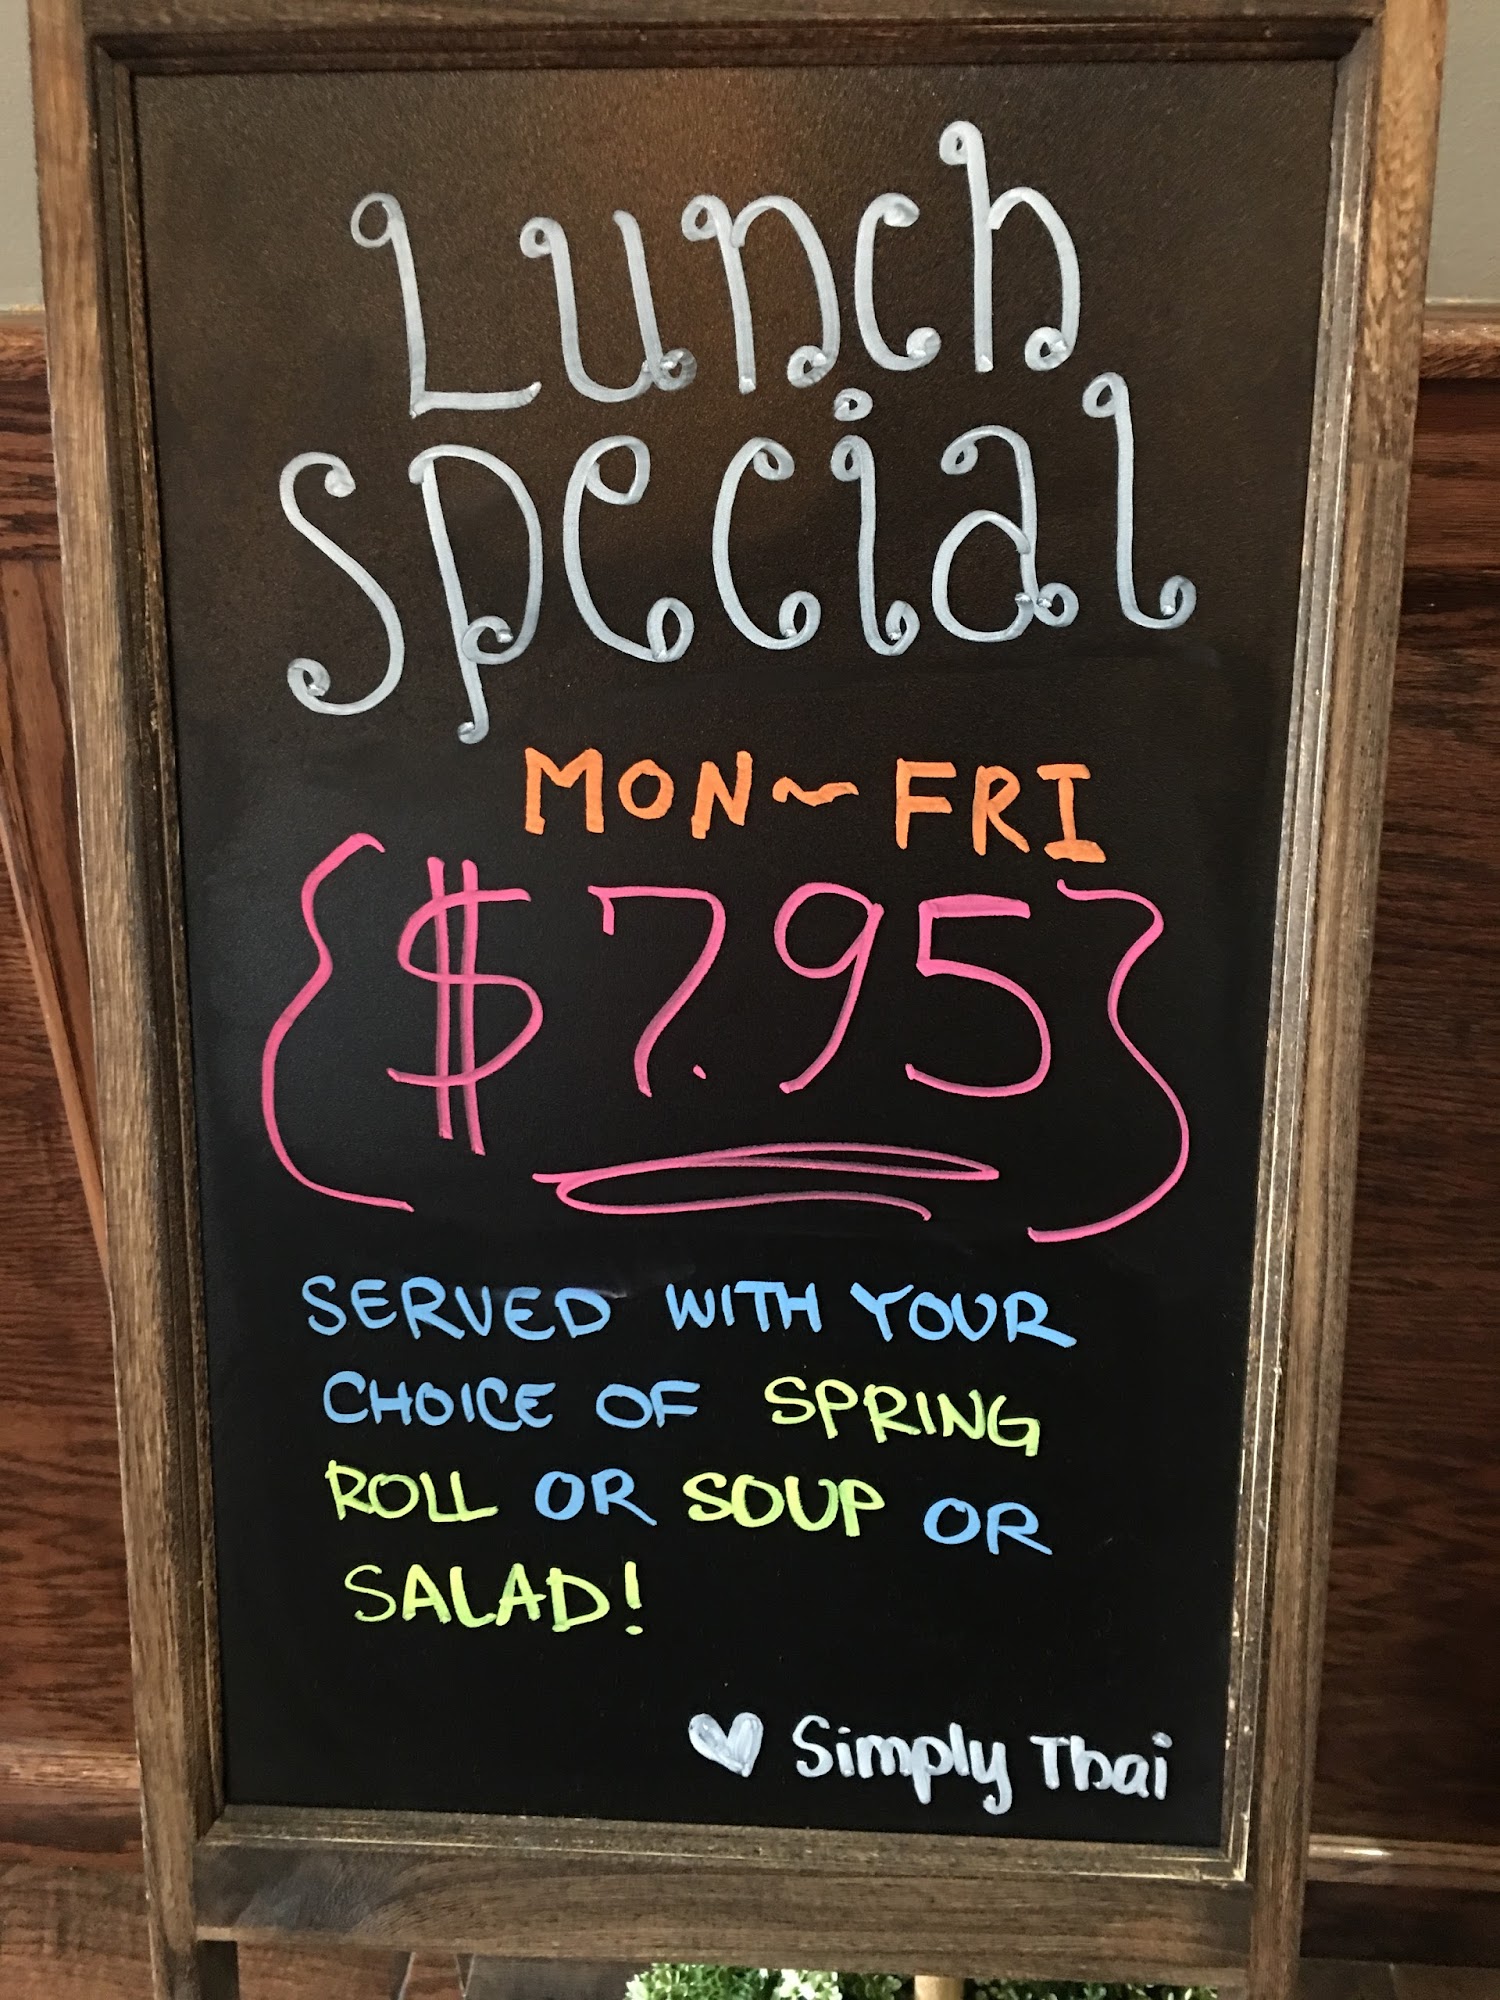 Lunch
Special
MON~FRI
{$7.95}
SERVED WITH YOUR
CHOICE OF SPRING
ROLL OR SOUP OR
SALAD!
♥ Simply Thai